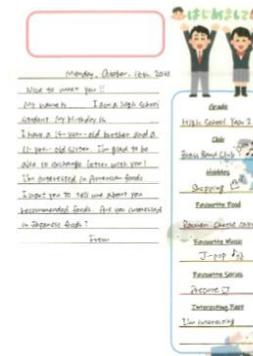 はじめまして
Monday, October, 16th, 20
Nice to meet you!!
My name is I am a high school
student. My birthday is
I have a 14-year-old brother and a
-year-old sister. I'm glad to be
able to exchange letter with you!
I'm interested in American foods
I want you to tell me about you
recommended foods. Are you interested
in Japanese foods?
From
Grade
High School Year 2
Club
Brass Band Club
Hobbies
Shopping
Favourite Food
Ramen Cheese
Favourite Music
J-pop
Favourite Series
Interesting Fact
I'm